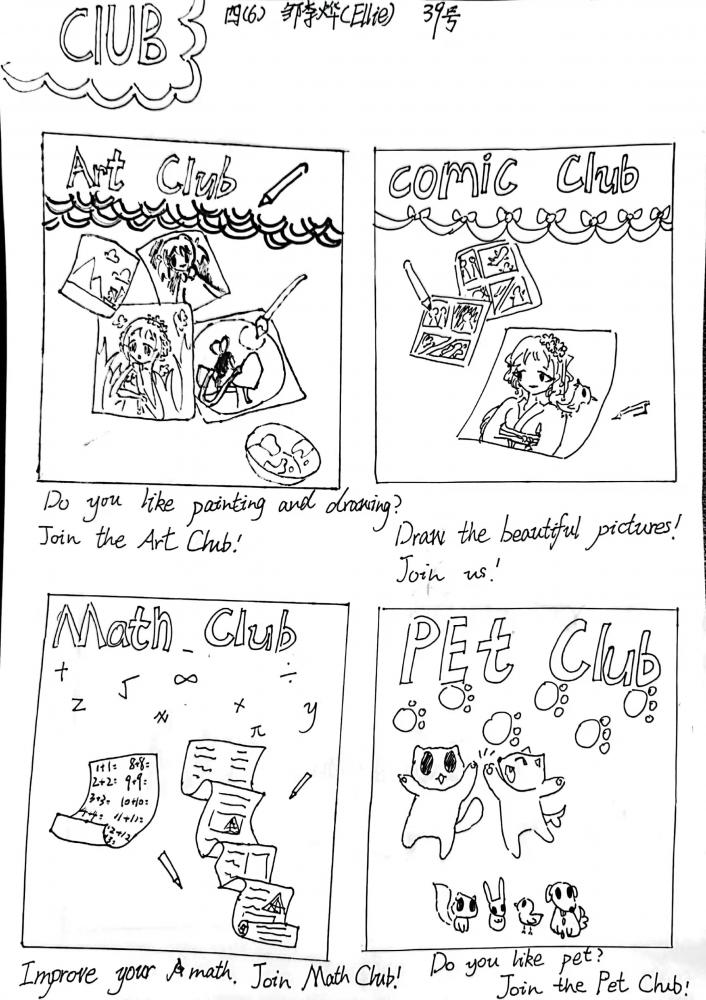 CLUB
四(6) 邹李烨(Ellie) 39号
Art Club
Comic Club
Do you like painting and drawing?
Join the Art Club!
Draw the beautiful pictures!
Join us!
Math Club
+ √ ∞ ÷
z x + π y
1+1= 8+8=
2+2= 9+9=
3+3= 10+10=
4+4= 11+11=
12+12
Improve your math. Join Math Club!
PEt Club
Do you like pet?
Join the Pet Club!